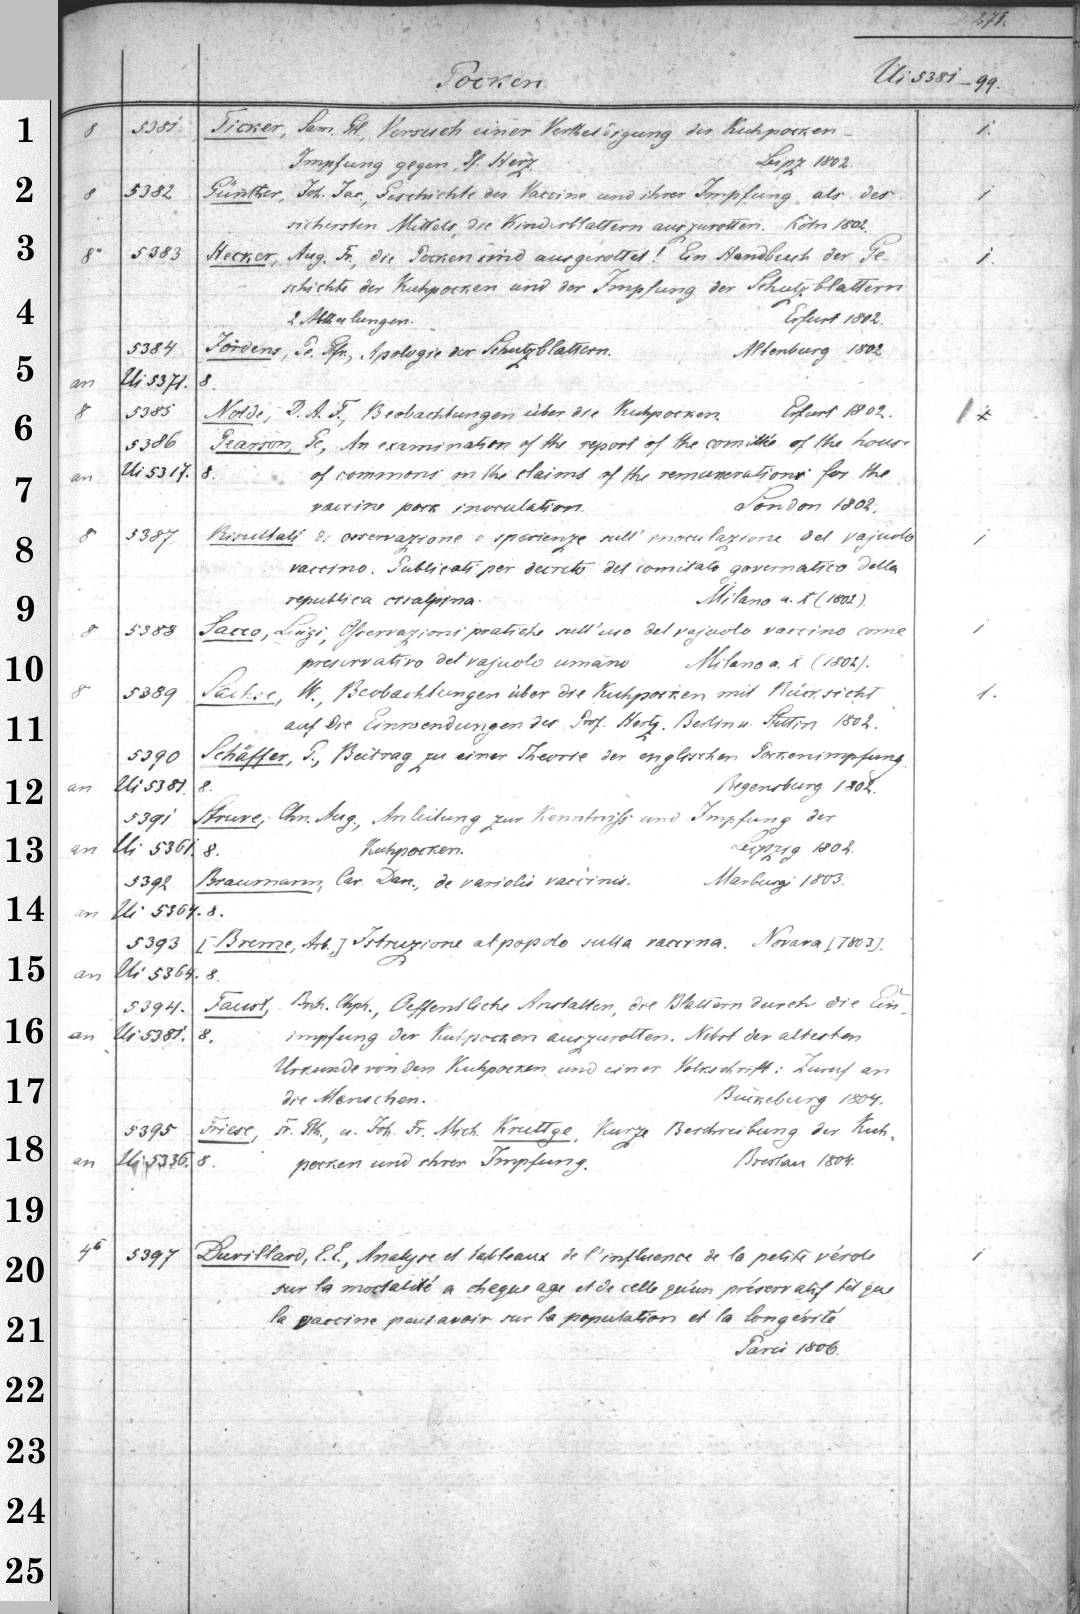 271.
Pocken
Ui 5381-99.
1
8 5381. Ficker, Sam. Gtl., Versuch einer Vertheidigung der Kuhpocken- i.
Impfung gegen Pf. Herz Leipz 1802.
2
8 5382 Günther, Joh. Jac., Geschichte der Vaccine und ihrer Impfung als des i
sichersten Mittels, die Kinderblattern auszurotten. Köln 1802.
3
8° 5383 Hecker, Aug. Fr., die Pocken sind ausgerottet! Ein Handbuch der Ge- i.
schichte der Kuhpocken und der Impfung der Schutzblattern
4
2 Abtheilungen. Erfurt 1802.
5384 Jördens, P. Gfr., Apologie der Schutzblattern. Altenburg 1802
5
an Ui 5371. 8.
8 5385 Nolde, D. A. F., Beobachtungen über die Kuhpocken Erfurt 1802.
6
5386 Pearson, Ge, An examination of the report of the comitte of the house
an Ui 5317. 8. of commons on the claims of the remuneration for the
7
vaccine pock inoculation. London 1802.
8 5387 Risultati di osservazione e sperienze sull' inoculazione del vajuolo i
8
vaccino. Publicati per decreto del comitato governativo della
9
republica cisalpina. Milano a. X (1802).
8 5388 Sacco, Luigi, Osservazioni pratiche sull'uso del vajuolo vaccino come i
10
preservativo del vajuolo umano Milano a. X (1802).
8 5389 Sachse, W., Beobachtungen über die Kuhpocken mit Rücksicht i.
11
auf die Einwendungen des Prof. Hertz. Berlin u. Stettin 1802.
5390 Schäffer, J., Beitrag zu einer Theorie der englischen Pockenimpfung.
12
an Ui 5381. 8. Regensburg 1802.
5391 Struve, Chr. Aug., Anleitung zur Kenntniss und Impfung der
13
an Ui 5361. 8. Kuhpocken. Leipzig 1802
5392 Braumann, Car. Dan., de variolis vaccinis. Marburgi 1803.
14
an Ui 5364. 8.
5393 [Breme, Arb.] Istruzione al popolo sulla vaccina. Novara [1803].
15
an Ui 5364. 8.
5394. Faust, Bnh. Chph., Oeffentliche Anstalten, die Blattern durch die Ein-
16
an Ui 5381. 8. impfung der Kuhpocken auszurotten. Nebst der altesten
Urkunde von den Kuhpocken und einer Volkschrift: Zuruf an
17
die Menschen. Bückeburg 1804.
5395 Friese, Fr. Gth., u. Joh. Fr. Mich. Kruttge, Kurze Beschreibung der Kuh-
18
an Ui 5336. 8. pocken und ihrer Impfung. Breslau 1804.
19
4° 5397 Duvillard, E. E., Analyse et tableaux de l'influence de la petite vérole i
20
sur la mortalité a cheque age et de celle qu'un préservatif tel que
21
la vaccine peut avoir sur la population et la longévité
Paris 1806.
22
23
24
25